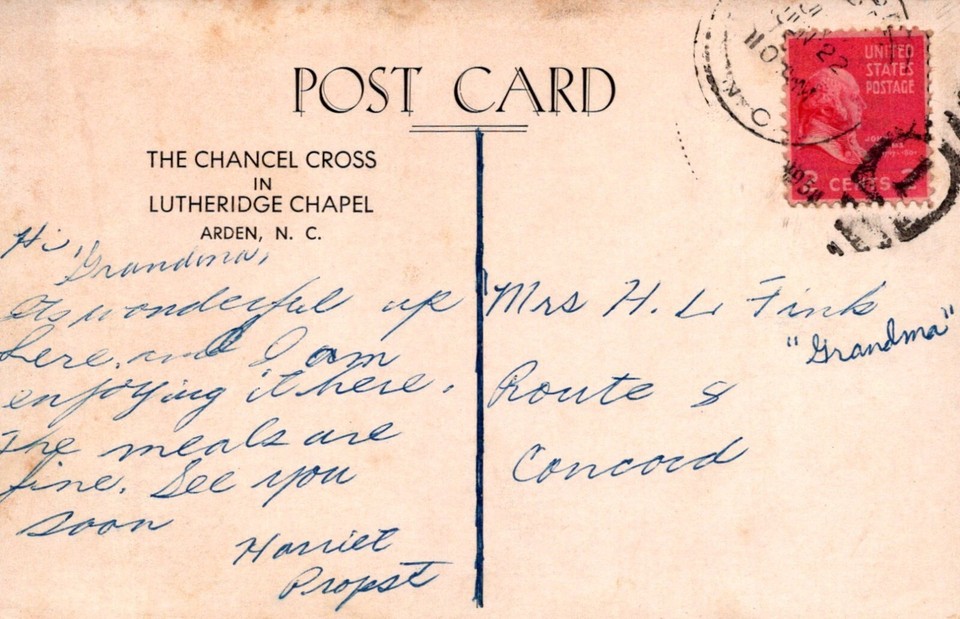 POST CARD
THE CHANCEL CROSS
IN
LUTHERIDGE CHAPEL
ARDEN, N. C.
UNITED
STATES
POSTAGE
CENTS
22
Hi,
Grandma,
Its wonderful up
here, and I am
enjoying it here.
The meals are
fine. See you
soon
Harriet
Propst
Mrs H. L Fink
"Grandma"
Route 8
Concord